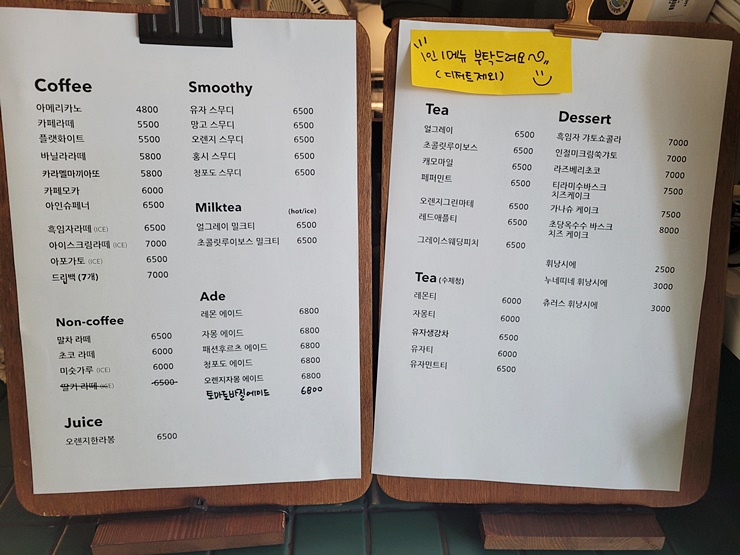 Coffee
아메리카노 4800
카페라떼 5500
플랫화이트 5500
바닐라라떼 5800
카라멜마끼아또 5800
카페모카 6000
아인슈페너 6500
흑임자라떼 (ICE) 6500
아이스크림라떼 (ICE) 7000
아포가토 (ICE) 6500
드립백 (7개) 7000
Non-coffee
말차 라떼 6500
초코 라떼 6000
미숫가루 (ICE) 6000
딸기 라떼 (ICE) 6500
Juice
오렌지한라봉 6500
Smoothy
유자 스무디 6500
망고 스무디 6500
오렌지 스무디 6500
홍시 스무디 6500
청포도 스무디 6500
Milktea (hot/ice)
얼그레이 밀크티 6500
초콜릿루이보스 밀크티 6500
Ade
레몬 에이드 6800
자몽 에이드 6800
패션후르츠 에이드 6800
청포도 에이드 6800
오렌지자몽 에이드 6800
토마토바질에이드 6800
1인 1메뉴 부탁드려요~
(디저트제외)
Tea
얼그레이 6500
초콜릿루이보스 6500
캐모마일 6500
페퍼민트 6500
오렌지그린마테 6500
레드애플티 6500
그레이스웨딩피치 6500
Tea (수제청)
레몬티 6000
자몽티 6000
유자생강차 6500
유자티 6000
유자민트티 6500
Dessert
흑임자 갸토쇼콜라 7000
인절미크림쑥갸토 7000
라즈베리초코 7000
티라미수바스크 7500
치즈케이크
가나슈 케이크 7500
초당옥수수 바스크 8000
치즈 케이크
휘낭시에 2500
누네띠네 휘낭시에 3000
츄러스 휘낭시에 3000